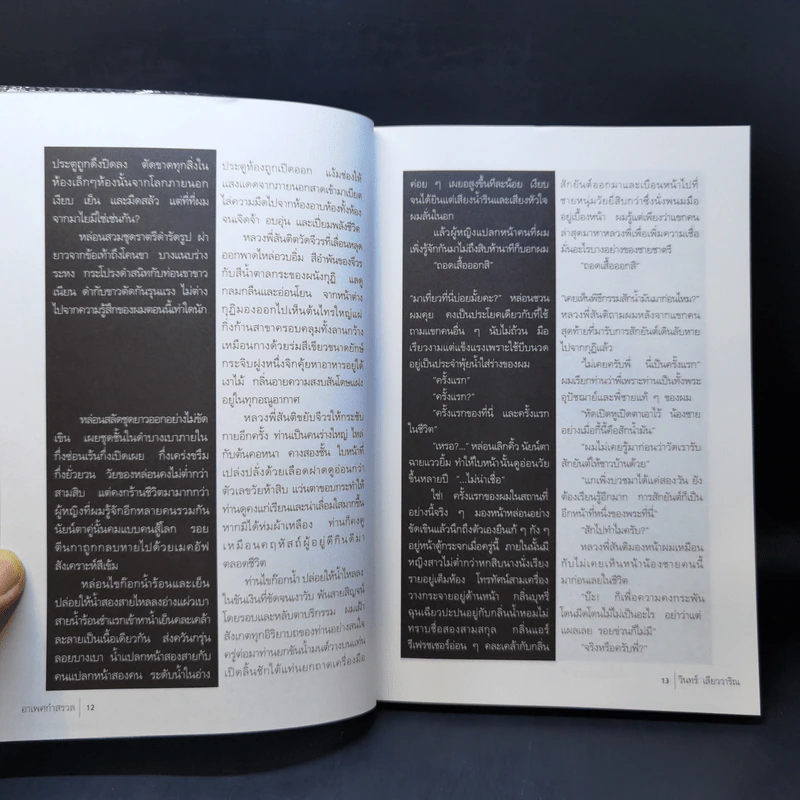 ประตูถูกดึงปิดลง ตัดขาดทุกสิ่งใน
ห้องเล็กๆห้องนั้นจากโลกภายนอก
เงียบ เย็น และมืดสลัว แต่ที่ที่ผม
จากมาไยมิใช่เช่นกัน?
หล่อนสวมชุดราตรีดำรัดรูป ผ่า
ยาวจากข้อเท้าถึงโคนขา บางแนบร่าง
ระหง กระโปรงดำสนิทกับท่อนขาขาว
เนียน ดำกับขาวตัดกันรุนแรง ไม่ต่าง
ไปจากความรู้สึกของผมตอนนี้เท่าใดนัก
หล่อนสลัดชุดยาวออกอย่างไม่ขัด
เขิน เผยชุดชั้นในดำบางเบาภายใน
กึ่งซ่อนเร้นกึ่งเปิดเผย กึ่งเคร่งขรึม
กึ่งยั่วยวน วัยของหล่อนคงไม่ต่ำกว่า
สามสิบ แต่คงกร้านชีวิตมามากกว่า
ผู้หญิงที่ผมรู้จักอีกหลายคนรวมกัน
นัยน์ตาคู่นั้นคมแบบคนสู้โลก รอย
ตีนกาถูกลบหายไปด้วยเมคอัฟ
สังเคราะห์สีเข้ม
หล่อนไขก๊อกน้ำร้อนและเย็น
ปล่อยให้น้ำสองสายไหลลงอ่างแผ่วเบา
สายน้ำร้อนซ่าแรกเข้าหน้ำเย็นคละเคล้า
ละลายเป็นเนื้อเดียวกัน ส่งควันกรุ่น
ลอยบางเบา น้ำแปลกหน้าสองสายกับ
คนแปลกหน้าสองคน ระดับน้ำในอ่าง
ประตูห้องถูกเปิดออก แง้มช่องให้
แสงแดดจากภายนอกสาดเข้ามาเบียด
ไล่ความมืดไปจากห้องอาบห้องทั้งห้อง
จนเจิดจ้า อบอุ่น และเปี่ยมพลังชีวิต
หลวงพี่สันติตวัดจีวรที่เลื่อนหลุด
ออกพาดไหล่อวบอิ่ม สีอำพันของจีวร
กับสีน้ำตาลกระของผนังกุฏิ แลดู
กลมกลืนและอ่อนโยน จากหน้าต่าง
กุฏิมองออกไปเห็นต้นไทรใหญ่แผ่
กิ่งก้านสาขาครอบคลุมทั้งลานกว้าง
เหมือนกางด้วยร่มสีเขียวขนาดยักษ์
กระจิบฝูงหนึ่งจิกคุ้ยหาอาหารอยู่ใต้
เงาไม้ กลิ่นอายความสงบสันโดษแฝง
อยู่ในทุกอณูอากาศ
หลวงพี่สันติขยับจีวรให้กระชับ
กายอีกครั้ง ท่านเป็นคนร่างใหญ่ ไหล่
กว้างกับต้นคอหนา คางสองชั้น ใบหน้าที่
เปล่งปลั่งด้วยเลือดฝาดดูอ่อนกว่า
ตัวเลขวัยห้าสิบ แว่นตาขอบกระทำให้
ท่านดูคงแก่เรียนและน่าเลื่อมใสมากขึ้น
หากมิได้ห่มผ้าเหลือง ท่านก็คงดู
เหมือนคฤหัสถ์ผู้อยู่ดีกินดีมา
ตลอดชีวิต
ท่านไขก๊อกน้ำ ปล่อยให้น้ำไหลลง
ในขันเงินที่ขัดจนเงาวับ พันสายสิญจน์
โดยรอบและหลับตาปริกรรม ผมเฝ้า
สังเกตทุกอิริยาบถของท่านอย่างสนใจ
ครู่ต่อมาท่านยกขันน้ำมนต์วางบนแท่น
เปิดลิ้นชักใต้แท่นยกถาดเครื่องมือ
อาเพศกำสรวล 12
ค่อย ๆ เผยอสูงขึ้นทีละน้อย เงียบ
จนได้ยินแต่เสียงน้ำรินและเสียงหัวใจ
ผมลั่นในอก
แล้วผู้หญิงแปลกหน้าคนที่ผม
เพิ่งรู้จักกันมาไม่ถึงสิบห้านาทีก็บอกผม
“ถอดเสื้อออกสิ”
“มาเที่ยวที่นี่บ่อยมั้ยคะ?” หล่อนชวน
ผมคุย คงเป็นประโยคเดียวกับที่ใช้
ถามแขกคนอื่น ๆ นับไม่ถ้วน มือ
เรียวงามแต่แข็งแรงเพราะใช้บีบนวด
อยู่เป็นประจำพุ้ยน้ำใส่ร่างของผม
“ครั้งแรก”
“ครั้งแรก?”
“ครั้งแรกของที่นี่ และครั้งแรก
ในชีวิต”
“เหรอ?...” หล่อนเลิกคิ้ว นัยน์ตา
ฉายแววยิ้ม ทำให้ใบหน้านั้นดูอ่อนวัย
ขึ้นหลายปี “...ไม่น่าเชื่อ”
ใช่! ครั้งแรกของผมในสถานที่
อย่างนี้จริง ๆ ผมมองหน้าหล่อนอย่าง
ขัดเขินแล้วนึกถึงตัวเองยืนเก้ ๆ กัง ๆ
อยู่หน้าตู้กระจกเมื่อครู่นี้ ภายในนั้นมี
หญิงสาวไม่ต่ำกว่าหกสิบนางนั่งเรียง
รายอยู่เต็มห้อง โทรทัศน์สามเครื่อง
วางกระจายอยู่ด้านหน้า กลิ่นบุหรี่
ฉุนเฉียวปะปนอยู่กับกลิ่นน้ำหอมไม่
ทราบชื่อสองสามสกุล กลิ่นแอร์
รีเฟรชเชอร์อ่อน ๆ คละเคล้ากับกลิ่น
สักยันต์ออกมาและเบือนหน้าไปที่
ชายหนุ่มวัยยี่สิบกว่าซึ่งนั่งพนมมือ
อยู่เบื้องหน้า ผมรู้แต่เพียงว่าแขกคน
ล่าสุดมาหาหลวงพี่เพื่อเพิ่มความเชื่อ
มั่นอะไรบางอย่างของชายชาตรี
“ถอดเสื้อออกสิ”
“เคยเห็นพิธีกรรมสักน้ำมันมาก่อนไหม?”
หลวงพี่สันติถามผมหลังจากแขกคน
สุดท้ายที่มารับการสักยันต์เดินลับหาย
ไปจากกุฏิแล้ว
“ไม่เคยครับพี่ นี่เป็นครั้งแรก”
ผมเรียกท่านว่าพี่เพราะท่านเป็นทั้งพระ
อุปัชฌาย์และพี่ชายแท้ ๆ ของผม
“หัดเปิดหูเปิดตาเอาไว้ น้องชาย
อย่างเมื่อกี้นี้คือสักน้ำมัน”
“ผมไม่เคยรู้มาก่อนว่าวัดเรารับ
สักยันต์ให้ชาวบ้านด้วย”
“แกเพิ่งบวชมาได้แค่สองวัน ยัง
ต้องเรียนรู้อีกมาก การสักยันต์ก็เป็น
อีกหน้าที่หนึ่งของพระที่นี่”
“สักไปทำไมครับ?”
หลวงพี่สันติมองหน้าผมเหมือน
กับไม่เคยเห็นหน้าน้องชายคนนี้
มาก่อนเลยในชีวิต
“บ๊ะ! ก็เพื่อความคงกระพัน
โดนมีดโดนไม้ไม่เป็นอะไร อย่าว่าแต่
แผลเลย รอยช้ำก็ไม่มี”
“จริงหรือครับพี่?”
13 วินทร์ เลียววาริณ